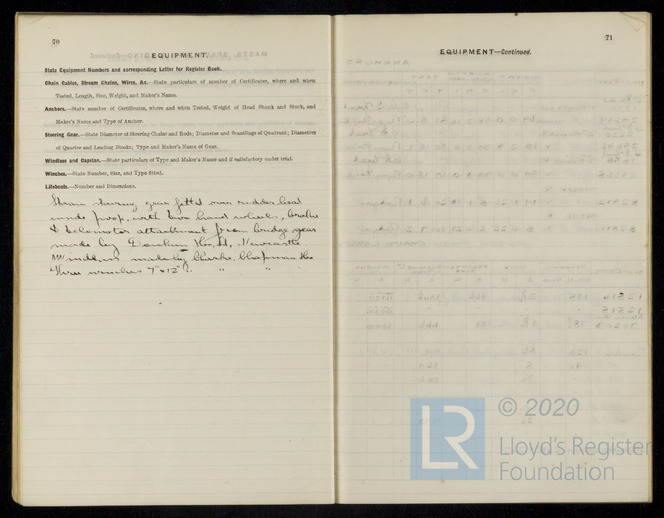 70
EQUIPMENT.
State Equipment Numbers and corresponding Letter for Register Book.
Chain Cables, Stream Chains, Wires, &c.—State particulars of number of Certificates, where and when
Tested, Length, Size, Weight, and Maker's Name.
Anchors.—State number of Certificates, where and when Tested, Weight of Head Shank and Stock, and
Maker's Name and Type of Anchor.
Steering Gear.—State Diameter of Steering Chains and Rods; Diameter and Scantlings of Quadrant; Diameters
of Quarter and Leading Blocks; Type and Maker's Name of Gear.
Windlass and Capstan.—State particulars of Type and Maker's Name and if satisfactory under trial.
Winches.—State Number, Size, and Type fitted.
Lifeboats.—Number and Dimensions.
Steam steering gear fitted over rudder head
inside poop, with two hand wheels, brake
& telemotor attachment from bridge, gear
made by Donkin & Co, Ld, Newcastle.
Windlass made by Clarke, Chapman & Co
Three winches 7" x 12" " "
71
EQUIPMENT—Continued.
LR
© 2020
Lloyd's Register
Foundation